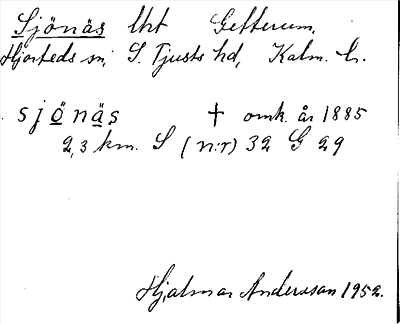 Sjönäs lht Getterum,
Hjorteds sn, S. Tjusts hd, Kalm. l.
sjönäs † omk. år 1885
2,3 km. S (n:r) 32 G 29
Hjalmar Andersson 1952.